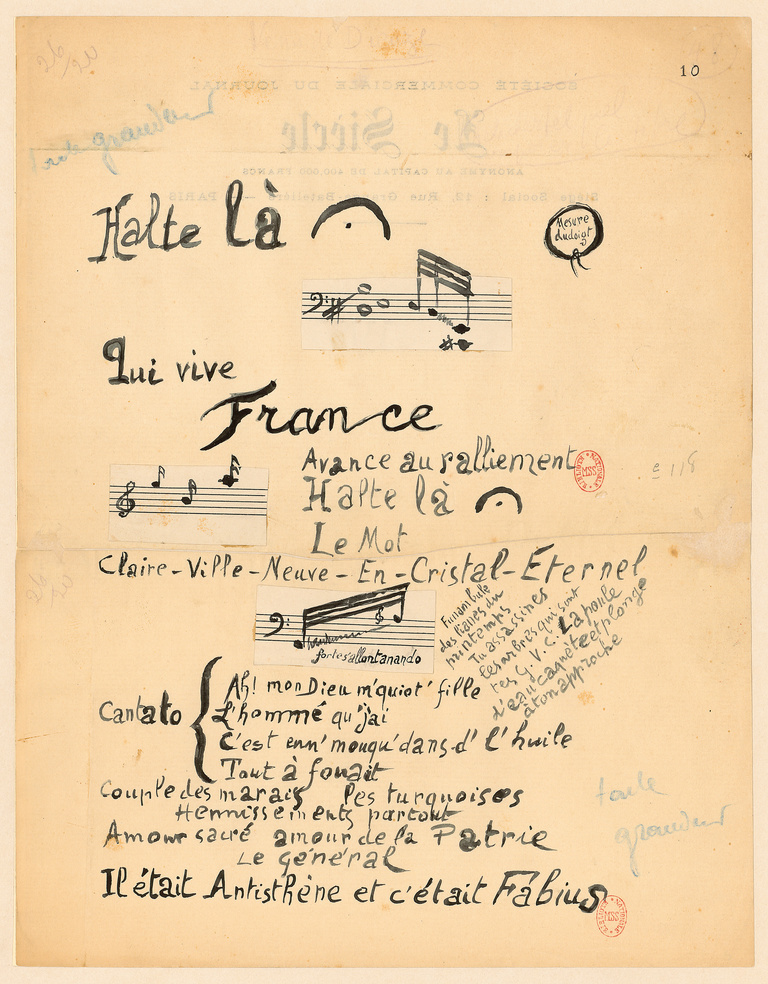 10
SOCIÉTÉ COMMERCIALE DU JOURNAL
Le Siècle
ANONYME AU CAPITAL DE 400.000 FRANCS
Siège Social : 12, Rue Grange-Batelière — PARIS
toute grandeur
Halte là
Mesure
du doigt
Qui vive
France
Avance au ralliement
Halte là
Le Mot
BIBLIOTH. NATIONALE MSS
118
Claire-Ville-Neuve-En-Cristal-Éternel
fortes allontanando
Funambule
des lianes du
printemps
Tu assassines
les arbres qui sont
tes G.V.C. La poule
d'eau caquète et plonge
à ton approche
Cantato
Ah! mon Dieu m'quiot' fille
L'hommé qu'j'ai
C'est enn' mouqu' dans d' l'huile
Tout à fouait
Couple des marais les turquoises
Hennissements partout
Amour sacré amour de la Patrie
Le général
Il était Antisthène et c'était Fabius
toute
grandeur
BIBLIOTH. NATIONALE MSS